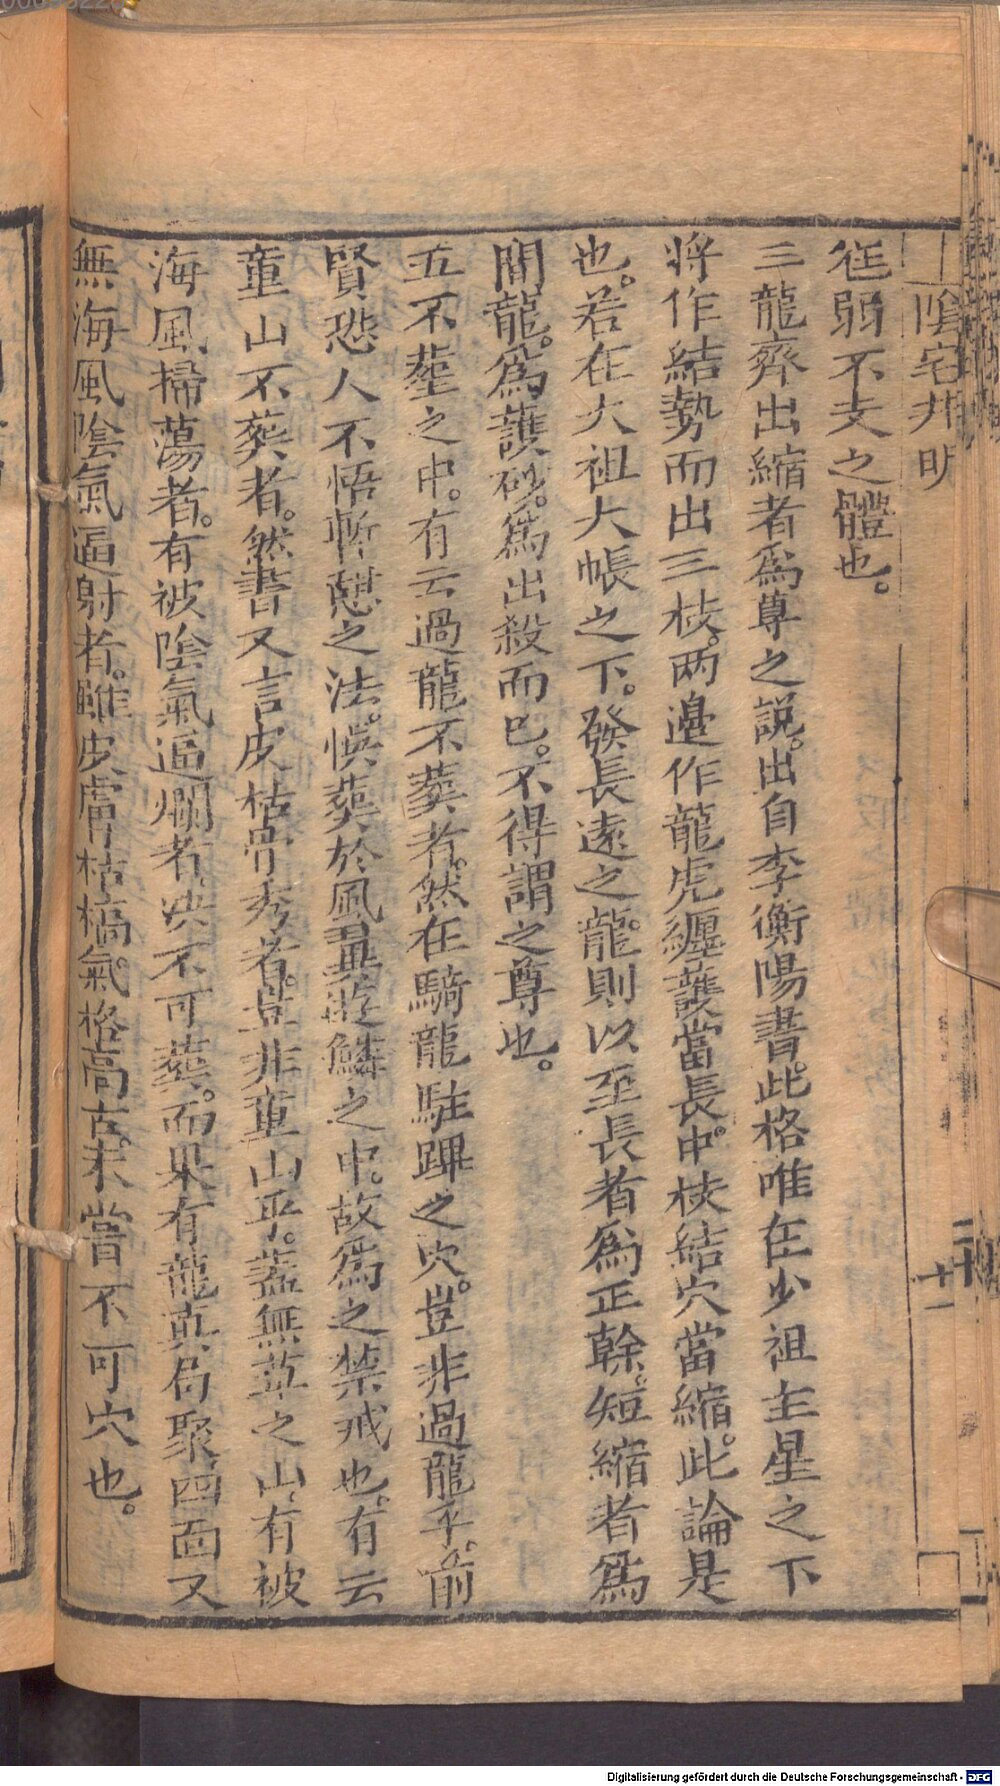 陰宅井明
十一
尩弱不支之體也。
三龍齊出縮者爲尊之說。出自李衡陽書。此格唯在少祖主星之下
將作結勢而出三枝。两邊作龍虎纒護當長。中枝結穴當縮。此論是
也。若在大祖大帳之下。發長遠之龍。則以至長者爲正幹。短縮者爲
閒龍。爲護砂。爲出殺而已。不得謂之尊也。
五不塟之中。有云過龍不葬者。然在騎龍駐蹕之穴。豈非過龍乎。前
賢恐人不悟暫憇之法。悞葬於風畢遊鱗之中。故爲之禁戒也。有云
童山不葬者。然書又言皮枯骨秀者。豈非童山乎。葢無草之山。有被
海風掃蕩者。有被陰氣逼爛者。决不可葬。而果有龍真局聚。四面又
無海風陰氣逼射者。雖皮膚枯槁。氣格高古。未嘗不可穴也。
Digitalisierung gefördert durch die Deutsche Forschungsgemeinschaft - DFG